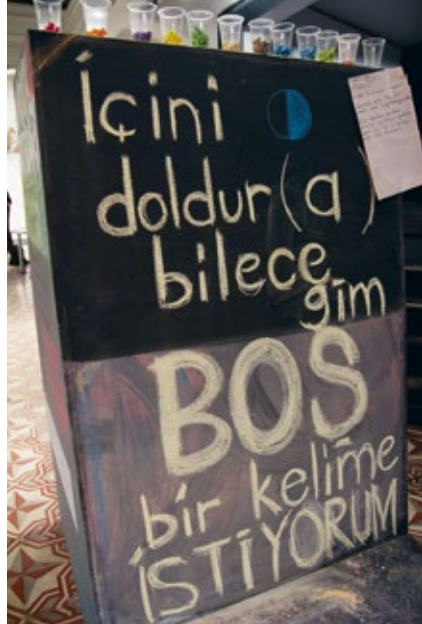 İçini
doldur(a)
bilece
ğim
BOŞ
bir kelime
İSTİYORUM